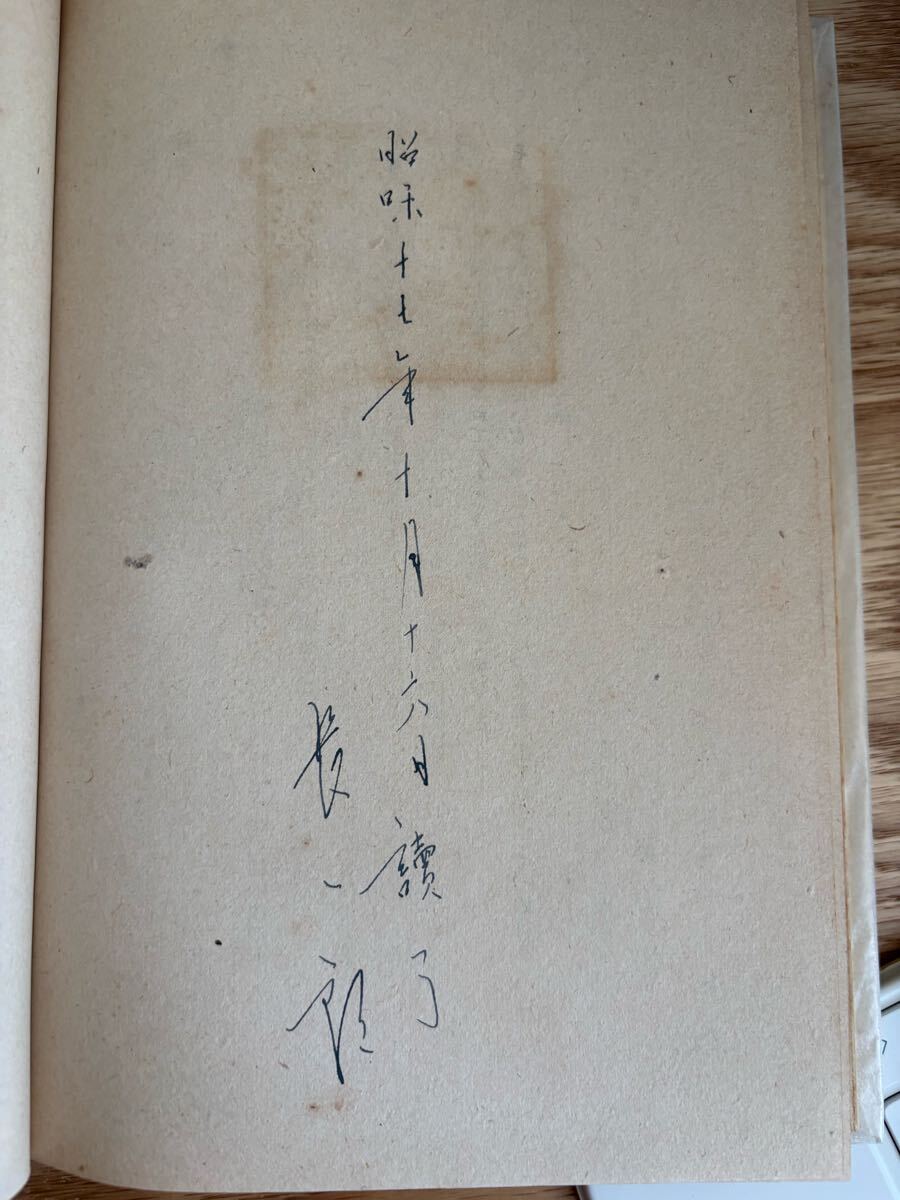 昭咊十七年十月十六日讀了
長一郎